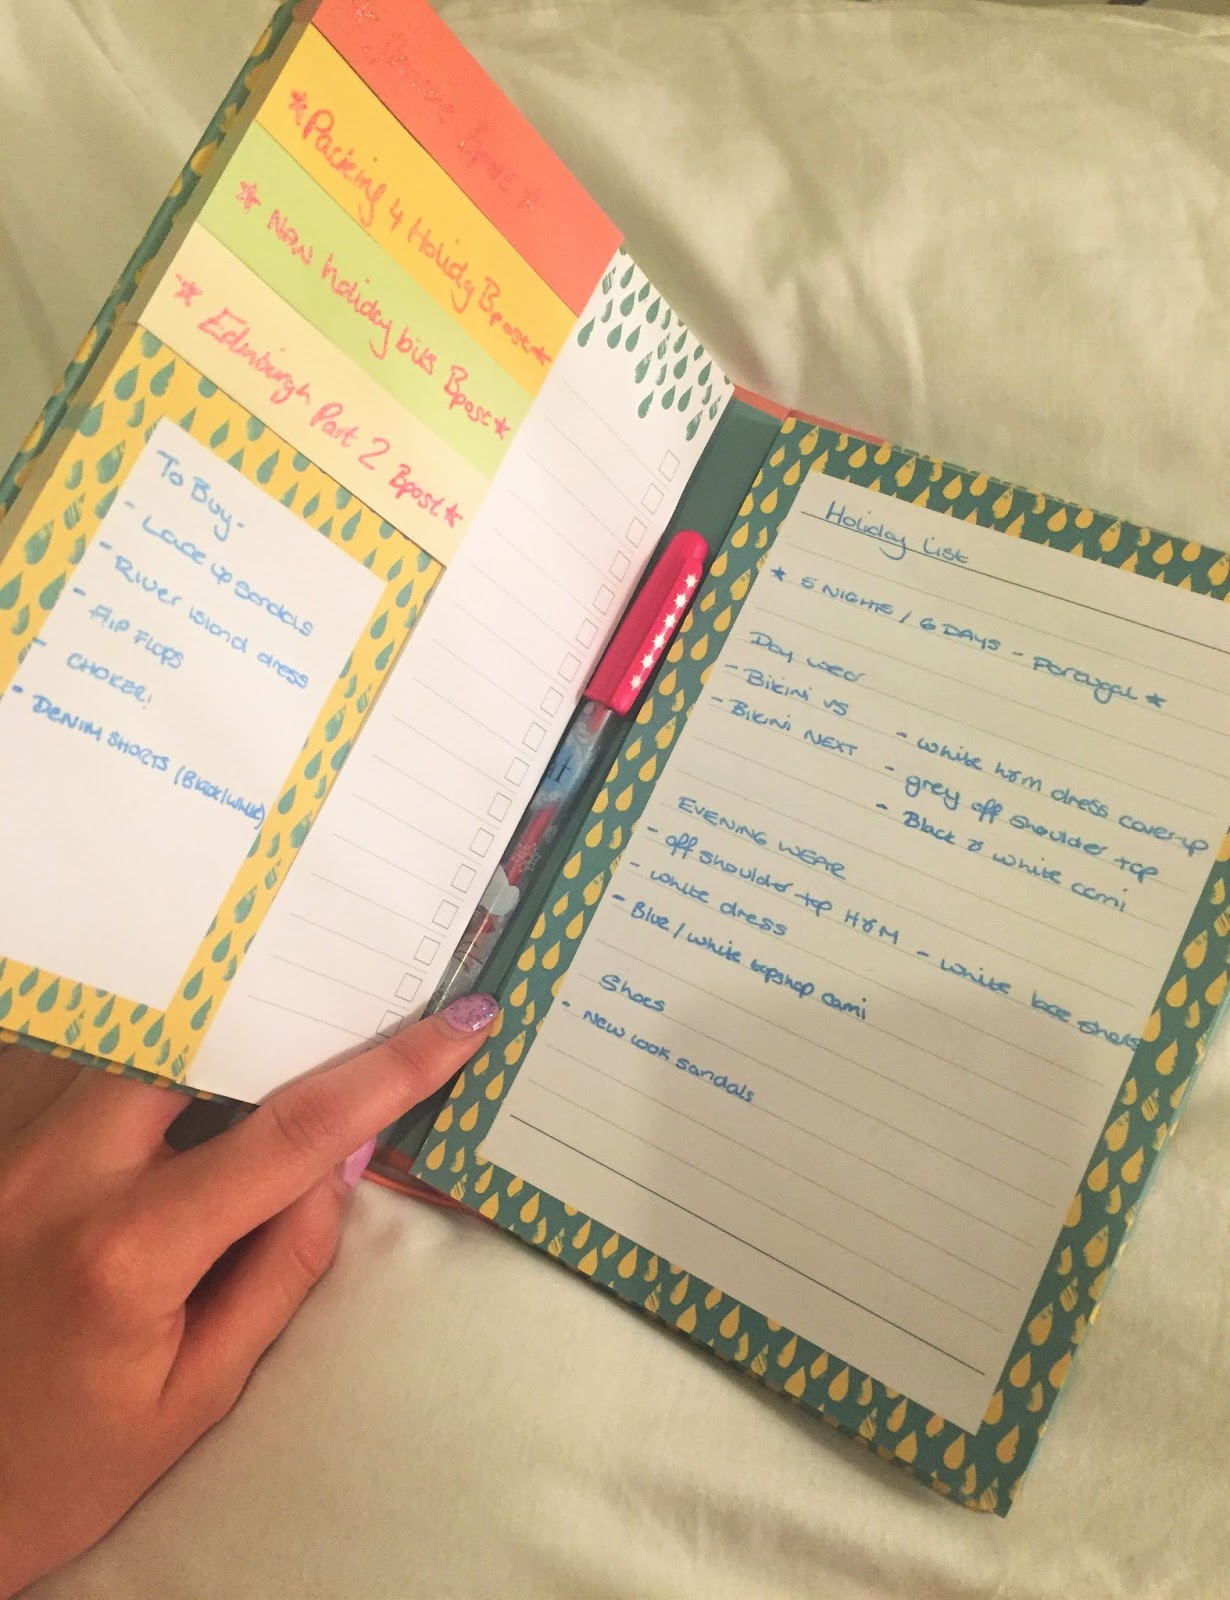 Bpost ☆
☆ Packing 4 Holiday Bpost ☆
☆ New holiday bits Bpost ☆
☆ Edinburgh Part 2 Bpost ☆
To Buy -
- Lace up sandals
- River island dress
- Flip Flops
- CHOKER!
- DENIM SHORTS (Black/white)
Holiday List
★ 5 NIGHTS / 6 DAYS - Portugal ★
Day wear
- Bikini VS
- Bikini NEXT
- white h&m dress cover-up
- grey off shoulder top
- Black & white cami
EVENING WEAR
- off shoulder top H&M
- white dress
- Blue / white topshop cami
- white lace shorts
Shoes
- New look sandals